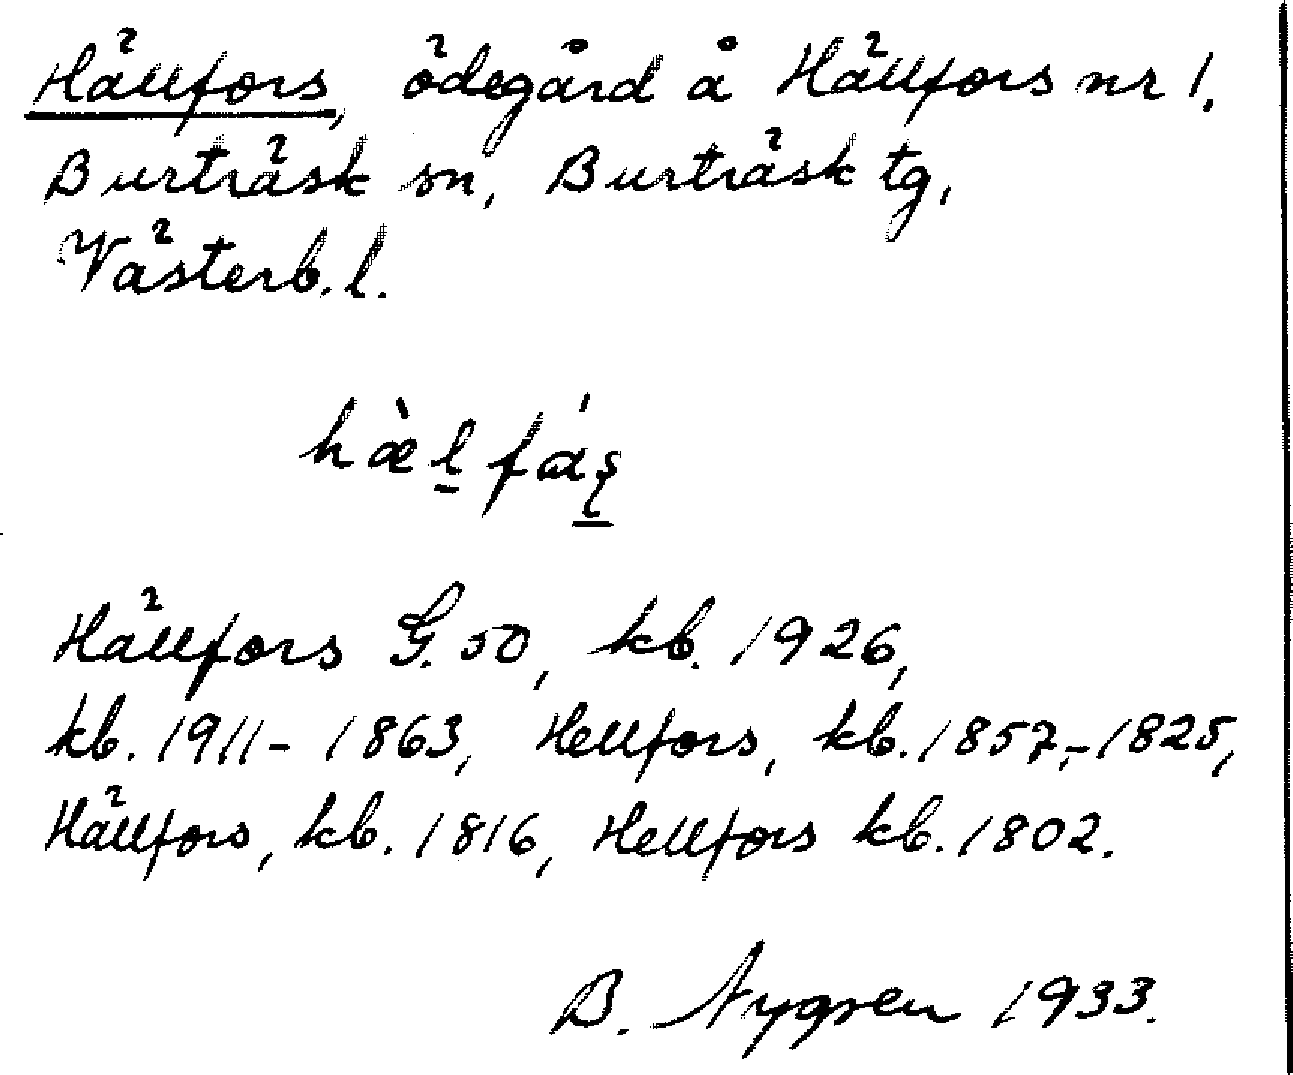 Hällfors, ödegård å Hällfors nr 1.
Burträsk sn, Burträsk tg,
Västerb. l.
hæ̀l̲ fáş̲
Hällfors G. 50, kb. 1926,
kb. 1911-1863, Hellfors, kb. 1857,-1825,
Hällfors, kb. 1816, Hellfors kb. 1802.
B. Nygren 1933.